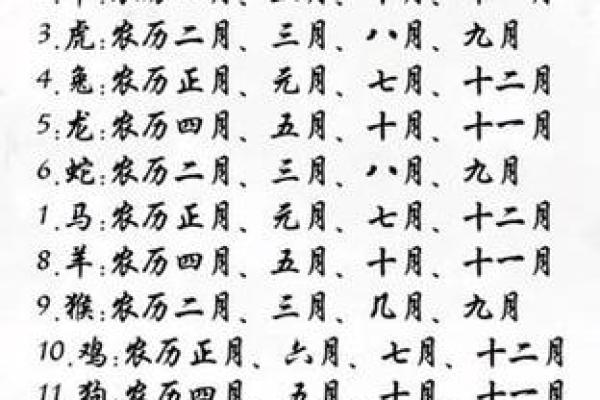 3.虎:农历二月、三月、八月、九月
4.兔:农历正月、元月、七月、十二月
5:龙:农历四月、五月、十月、十一月
6.蛇:农历二月、三月、八月、九月
1.马:农历正月、元月、七月、十二月
8.羊:农历四月、五月、十月、十一月
9.猴:农历二月、三月、几月、九月
10.鸡:农历正月、六月、七月、十二月
11.狗:农历四月、五月、十月、十一月